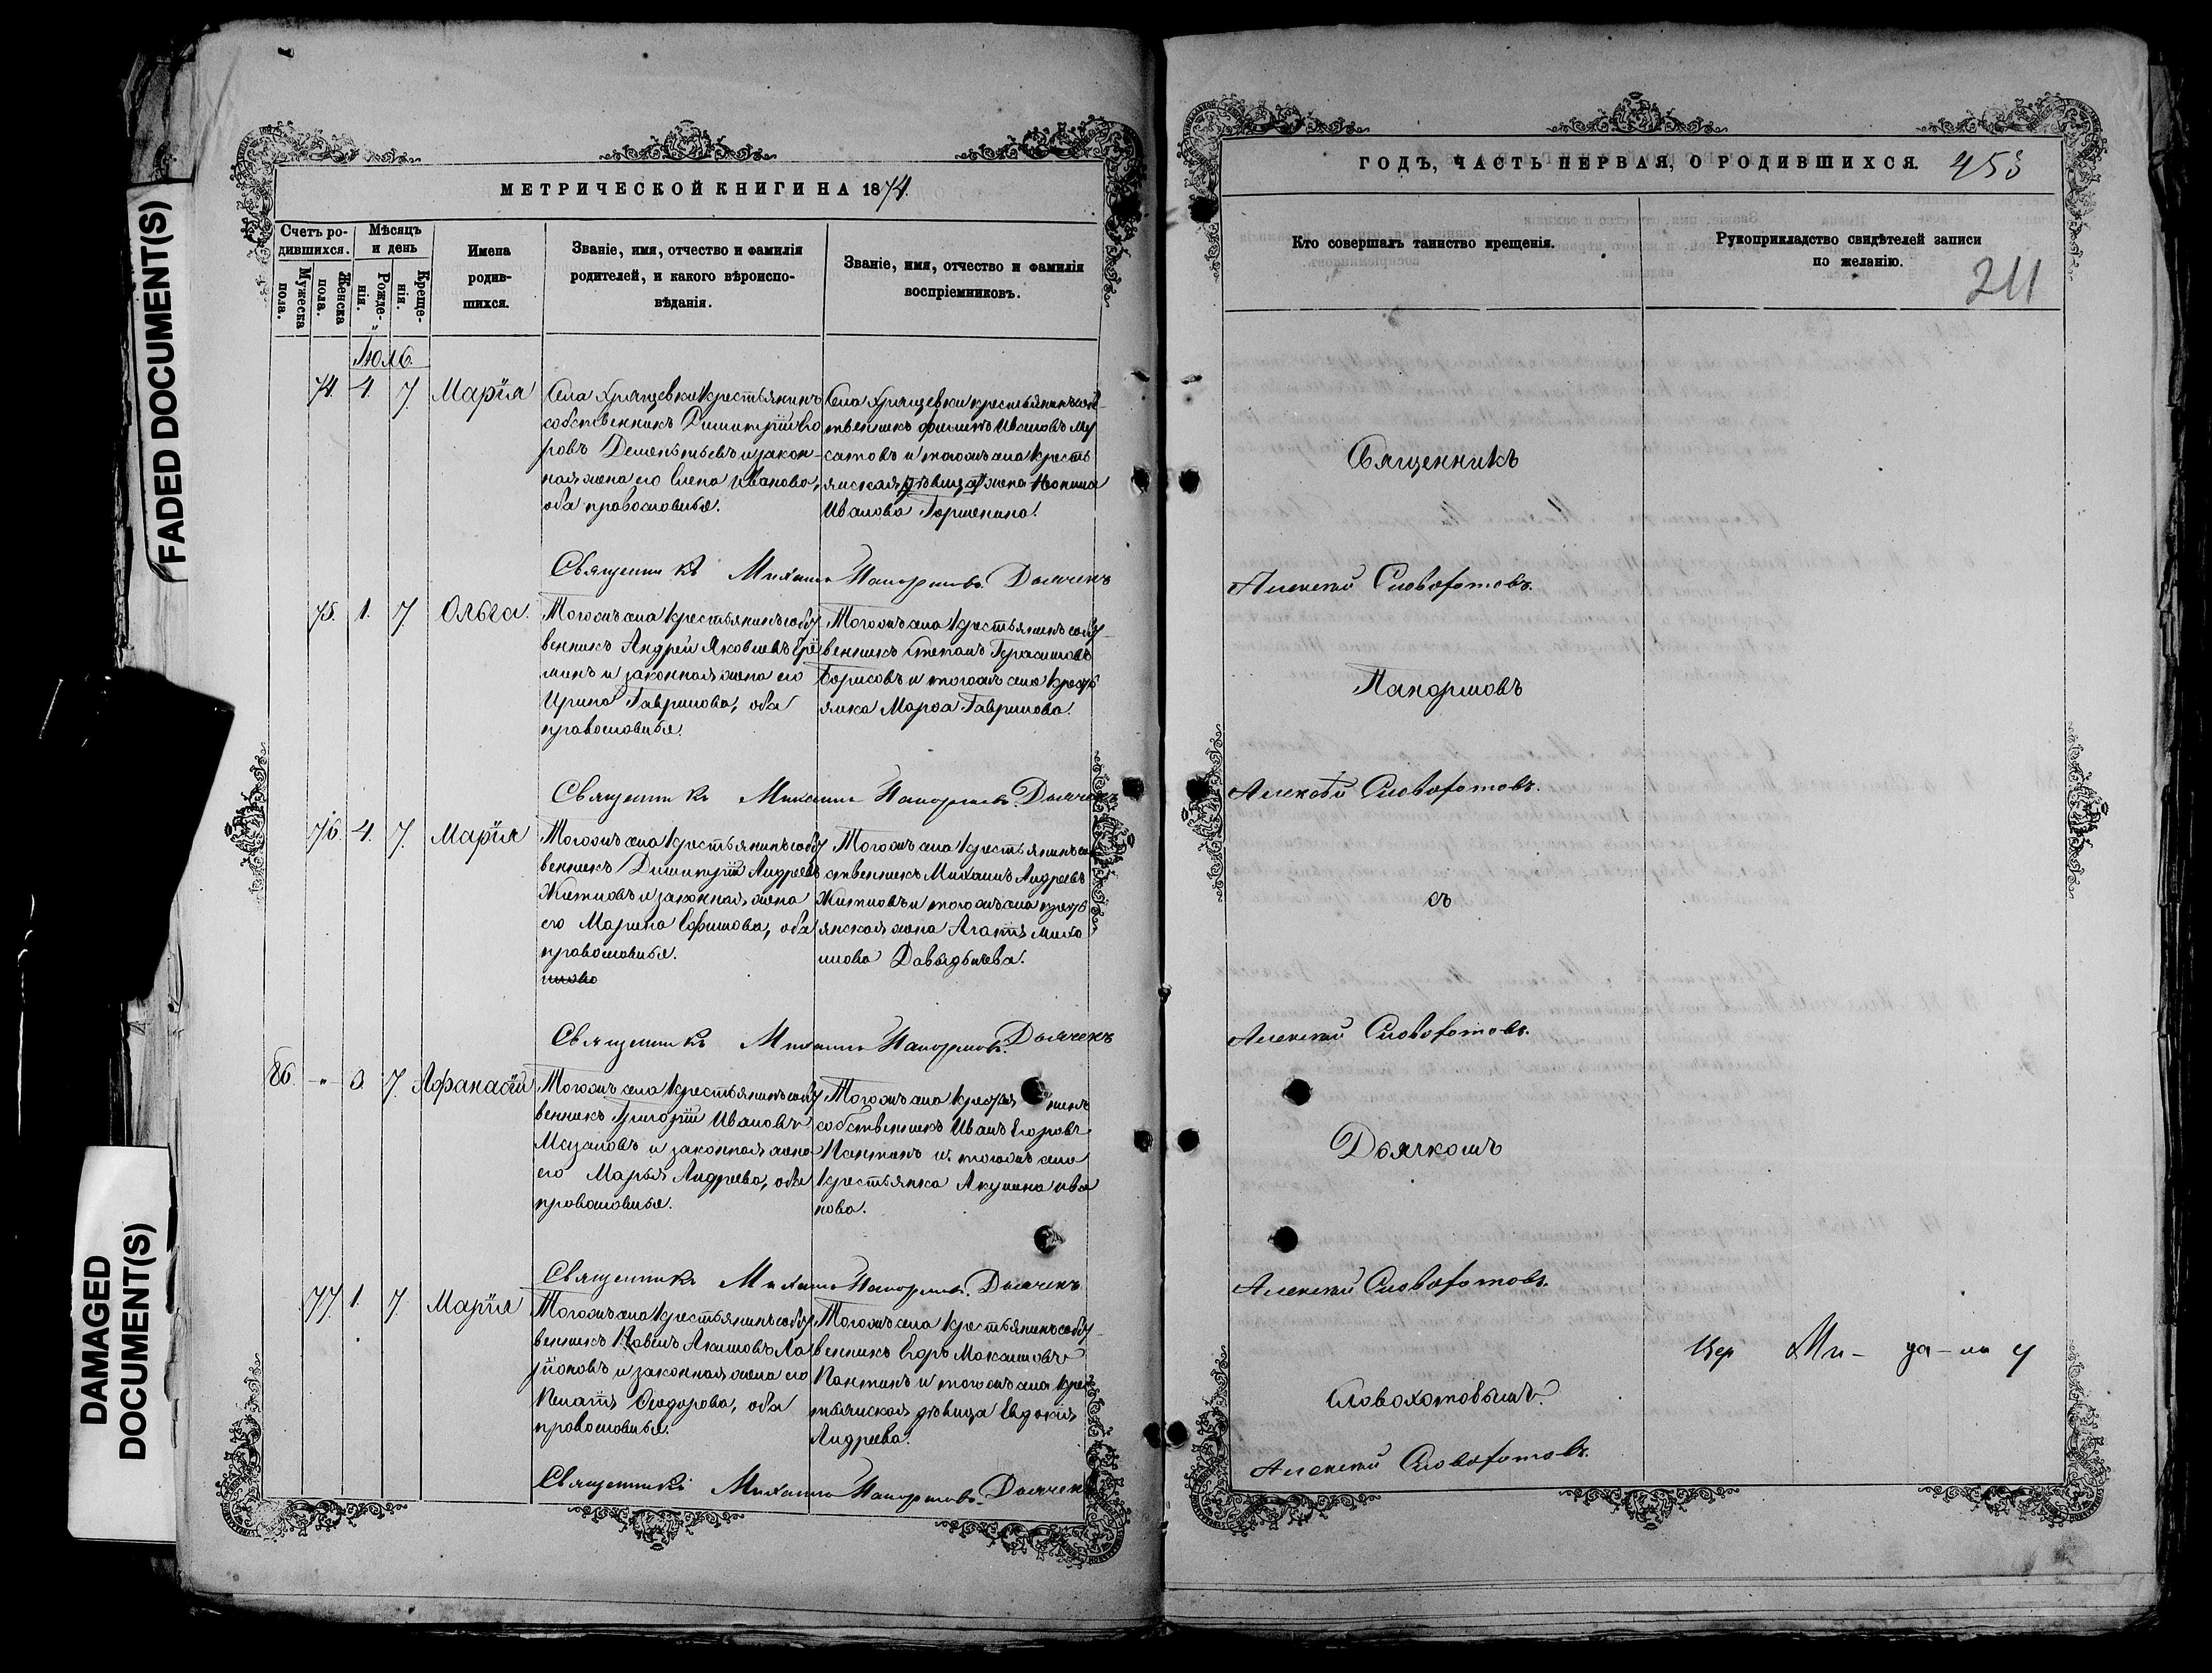 FADED DOCUMENT(S)
DAMAGED
DOCUMENT(S)
МЕТРИЧЕСКОЙ КНИГИ НА 1874.
Счетъ ро-
дившихся.
Мѣсяцъ
и день
Мужеска
пола.
Женска
пола.
Рожде-
нія.
Креще-
нія.
Имена
родив-
шихся.
Званіе, имя, отчество и фамилія
родителей, и какого вѣроиспо-
вѣданія.
Званіе, имя, отчество и фамилія
воспріемниковъ.
Іюль
74. 4. 7. Марія
Села Хрящевки крестьянинъ
собственникъ Димитрій
ровъ Дементьевъ и закон-
ная жена его Елена Иванова,
оба православные.
Села Хрящевки крестьянинъ соб-
твенникъ Филипъ Ивановъ Му
сатовъ и тогожъ села кресть
янская жена
Иванова Горшенина.
Священникъ Михаилъ Панормовъ. Дьячекъ
75. 1. 7 Ольга.
Тогожъ села крестьянинъ собст
венникъ Андрей Яковлевъ Ере
минъ и законная жена его
Ирина Гаврилова, оба
православные.
Тогожъ села крестьянинъ собст-
венникъ Степанъ Герасимовъ
Борисовъ и тогожъ села крест
янка Марфа Гаврилова.
Священникъ Михаилъ Панормовъ. Дьячекъ
76. 4. 7. Марія
Тогожъ села крестьянинъ собст
венникъ Димитрій Андреевъ
Житловъ и законная жена
его Марина Ефимова, оба
православные.
Тогожъ села крестьянинъ со
ственникъ Михаилъ Андреевъ
Житловъ и тогожъ села крест
янская жена Агаѳія Миха
илова Давыдычева.
Священникъ Михаилъ Панормовъ. Дьячекъ
86. " 3. 7. Афанасій
Тогожъ села крестьянинъ собст
венникъ Григорій Ивановъ
Мазановъ и законная жена
его Марья Андреева, оба
православные.
Тогожъ села крестья нинъ
собственникъ Иванъ Егоровъ
Пантинъ и тогожъ села
крестьянка Акулина Ива
нова.
Священникъ Михаилъ Панормовъ. Дьячекъ
77. 1. 7. Марія
Тогожъ села крестьянинъ собст
венникъ Павелъ Акимовъ Ла
ріоновъ и законная жена его
Пелагія Ѳедорова, оба
православные.
Тогожъ села крестьянинъ собст-
венникъ Егоръ Максимовъ
Пантинъ и тогожъ села крес
тьянская дѣвица Евдокія
Андреева.
Священникъ Михаилъ Панормовъ. Дьячекъ
ГОДЪ, ЧАСТЬ ПЕРВАЯ, О РОДИВШИХСЯ. 453
Кто совершалъ таинство крещенія.
Рукоприкладство свидѣтелей записи
по желанію.
211
Священникъ
Алексѣй Словохотовъ.
Панормовъ
Алексѣй Словохотовъ.
съ
Алексѣй Словохотовъ.
Дьячкомъ
Алексѣй Словохотовъ.
Словохотовымъ.
Алексѣй Словохотовъ.